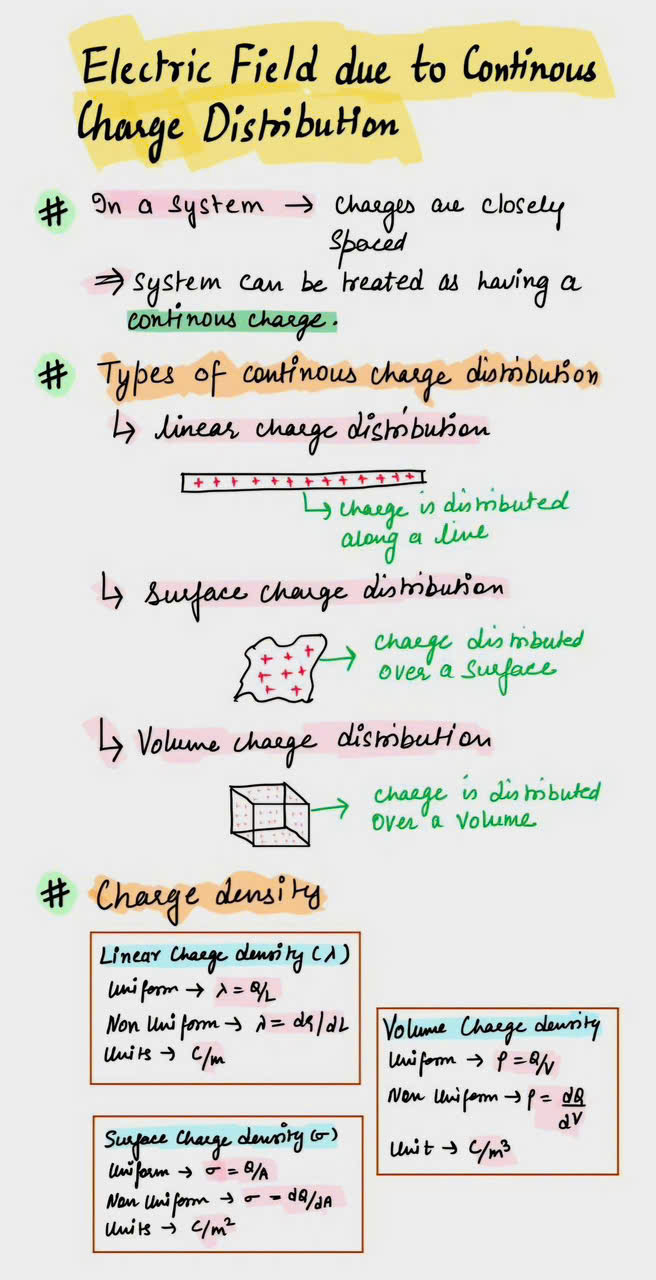 Electric Field due to Continous
Charge Distribution
# In a system → charges are closely
spaced
⇒ system can be treated as having a
continous charge.
# Types of continous charge distribution
↳ linear charge distribution
+ + + + + + + + + + + + +
↳ charge is distributed
along a line
↳ surface charge distribution
→ charge distributed
over a surface
↳ Volume charge distribution
→ charge is distributed
over a volume
# Charge density
Linear Charge density (λ)
Uniform → λ = Q/L
Non Uniform → λ = dq/dL
Units → C/m
Surface Charge density (σ)
Uniform → σ = Q/A
Non Uniform → σ = dQ/dA
Units → C/m²
Volume Charge density
Uniform → ρ = Q/V
Non Uniform → ρ = dQ/dV
Unit → C/m³